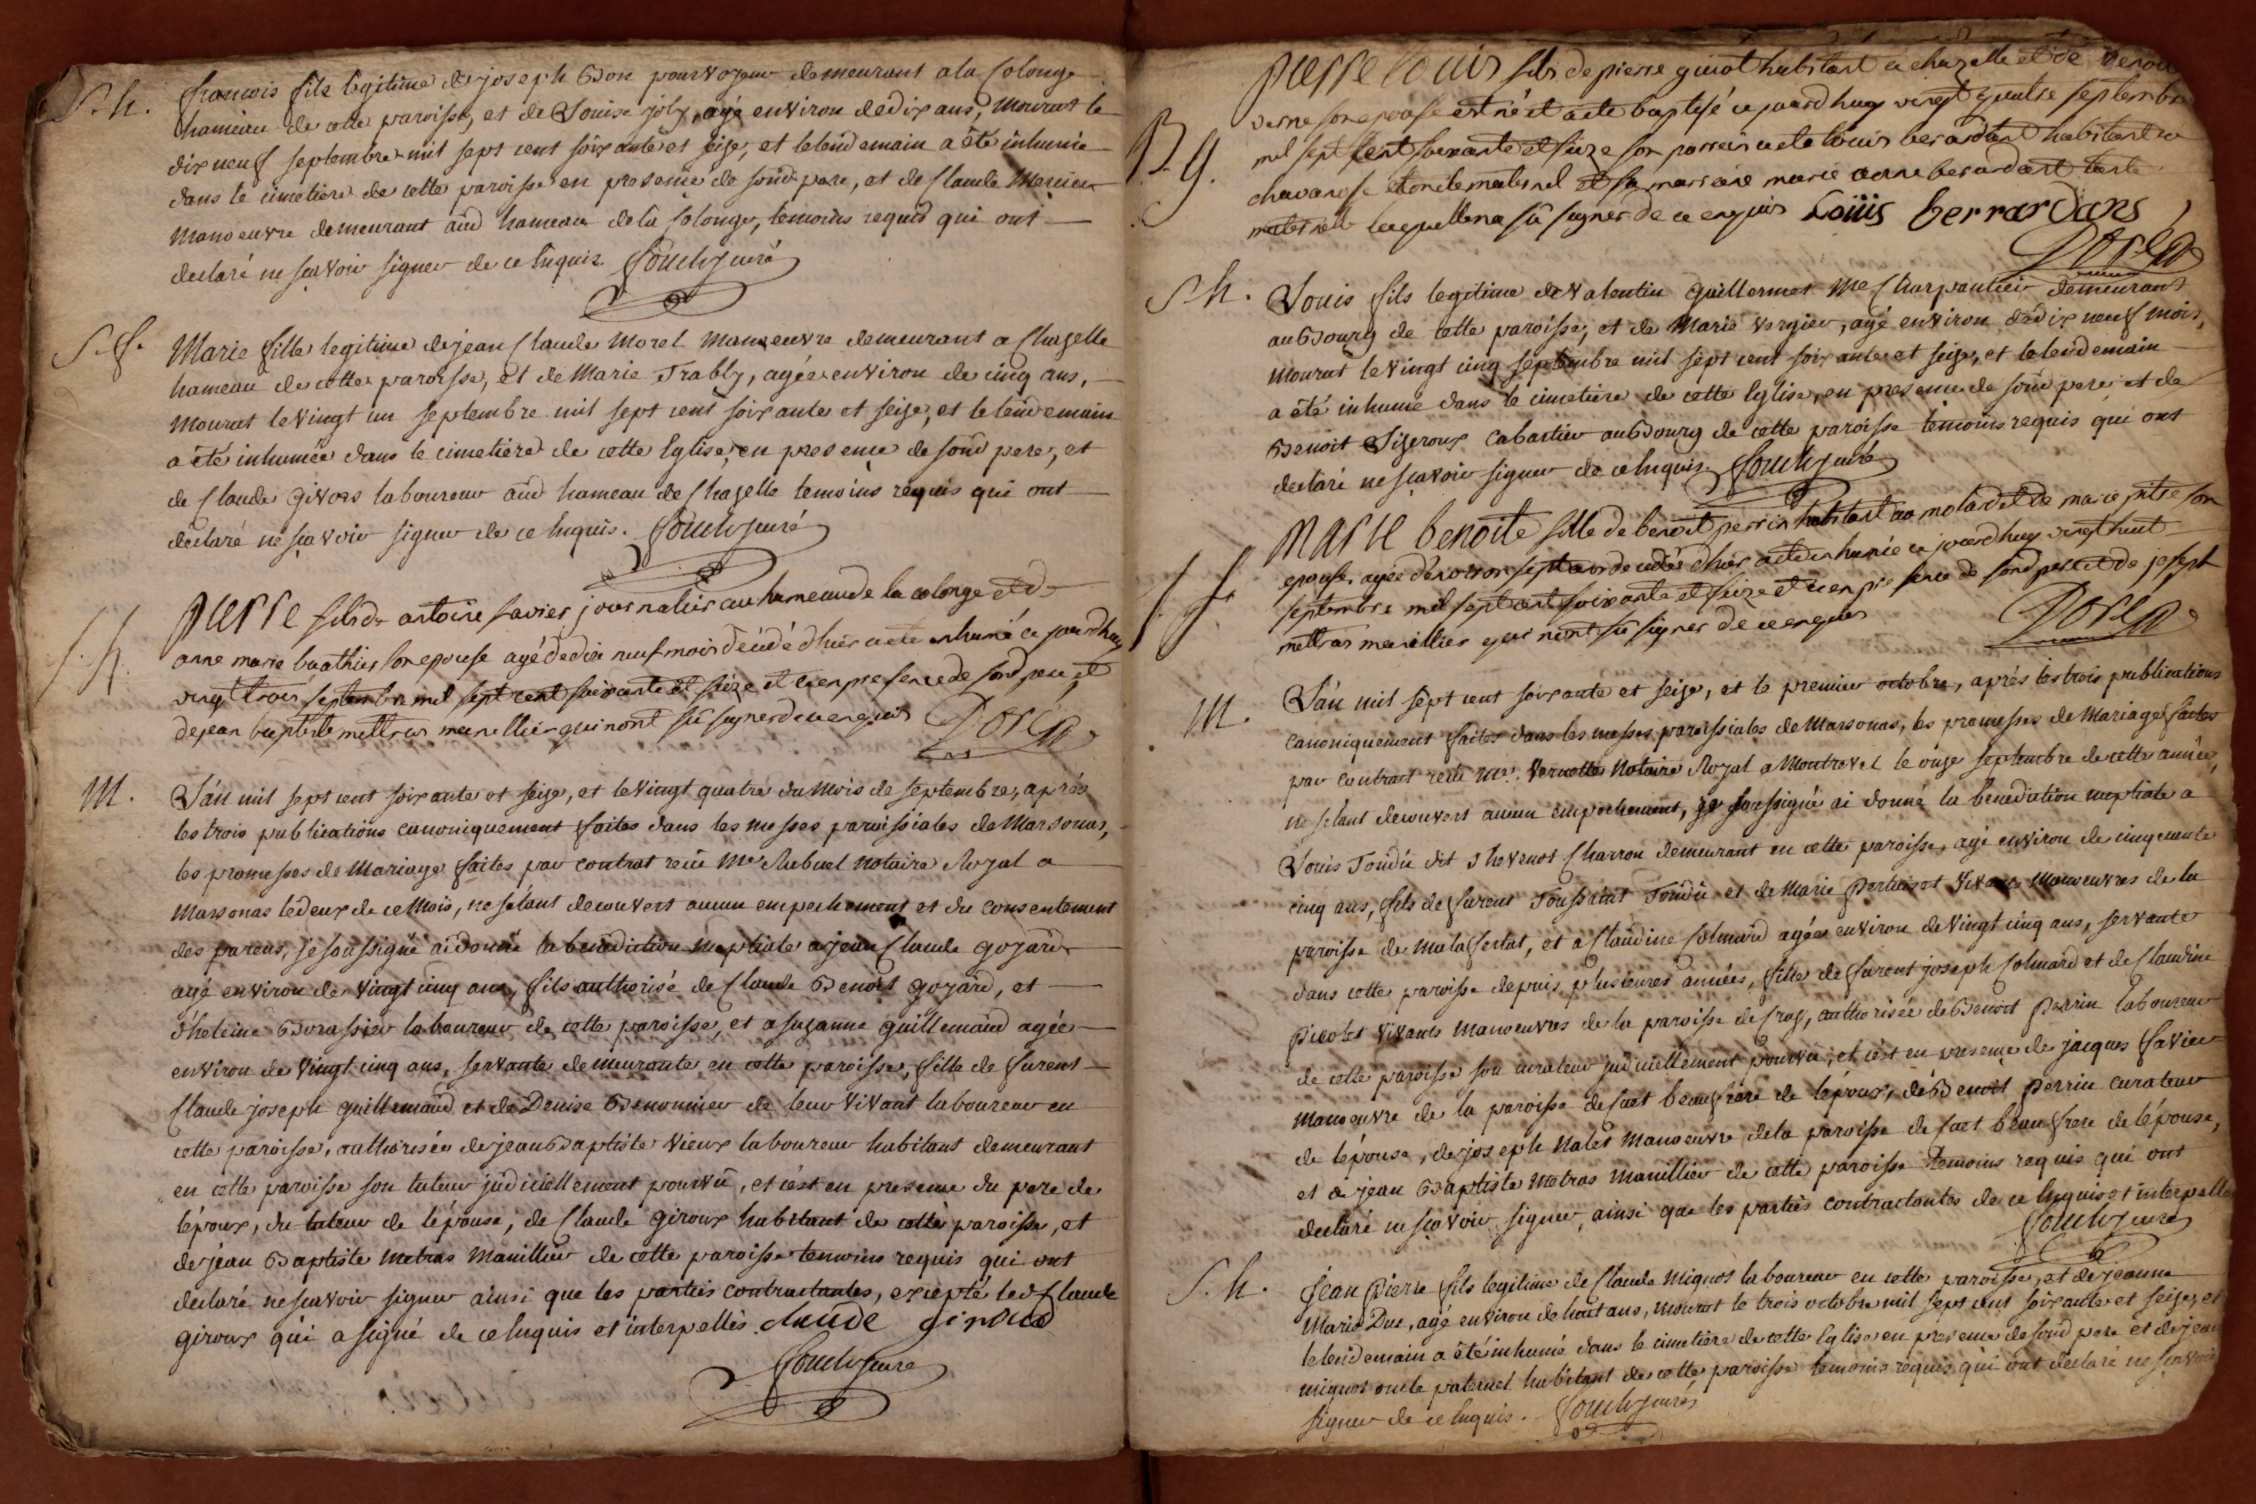 S. h. francois fils legitime de joseph Bon pourvoyeur demeurant a la Colonge
hameau de cette paroisse, et de Louise joly, agé environ de dix ans, mourut le
dix neuf septembre mil sept cent soixante et seize, et le lendemain a été inhumé
dans le cimetiere de cette paroisse en presence de soud pere, et de Claude Mercier
manoeuvre demeurant aud hameau de la Colonge, temoins requis qui ont
declaré ne scavoir signer de ce Enquis
S. f. Marie fille legitime de jean Claude Morel manoeuvre demeurant a Chazelle
hameau de cette paroisse, et de Marie Trably, agée environ de cinq ans,
mourut le vingt un septembre mil sept cent soixante et seize, et le lendemain
a été inhumée dans le cimetiere de cette Eglise, en presence de soud pere, et
de Claude Givors laboureur aud hameau de Chazelle temoins requis qui ont
declaré ne scavoir signer de ce Enquis.
S. h. pierre fils de antoine favier journalier au hameau de la colonge et de
anne marie buathier son epouse agé de dix neuf mois décédé d'hier a ete inhumé ce jourdhuy
vingt trois septembre mil sept cent soixante et seize et ce en presence de soud pere et
de jean baptiste mettras marellier qui n'ont sü signer de ce enquis
M. L'an mil sept cent soixante et seize, et le vingt quatre du mois de septembre, aprés
les trois publications canoniquement faites dans les messes paroissiales de Marsonas,
les promesses de Mariage faites par contrat recu Me Rebuel notaire Royal a
Marsonas le deux de ce Mois, ne s'etant decouvert aucun empechement et du consentement
des parens, je soussigné ai donné la benediction nuptiale a jean Claude goyard
agé environ de vingt cinq ans, fils authorisé de Claude Benoit goyard, et
d'heleine Brassier laboureur de cette paroisse, et a suzanne guillemaud agée
environ de vingt cinq ans, servante demeurante en cette paroisse, fille de furent
Claude joseph guillemaud et de Denise Benonnier de leur vivant laboureur en
cette paroisse, authorisée de jean Baptiste vieux laboureur habitant demeurant
en cette paroisse son tuteur judiciellement pourvû, et c'est en presence du pere de
l'époux, du tuteur de l'épouse, de Claude giroux habitant de cette paroisse, et
de jean Baptiste metras manillier de cette paroisse temoins requis qui ont
declaré ne scavoir signer ainsi que les parties contractantes, excepté led Claude
giroux qui a signé de ce Enquis et interpellés. claude giroud
pierre louis fils de pierre guiot habitant a chazelle et de
verne son epouse est né et a ete baptisé ce jourdhuy vingt quatre septembre
B. g. mil sept cent soixante et seize son parrein a ete louis berardant habitant a
chavanosse et oncle maternel et sa marraine marie anne berardant tante
maternelle laquelle na sü signer de ce enquis Loüis berrardans
S. h. Louis fils legitime de Valentin guillermet Me Charpantier demeurant
au Bourg de cette paroisse, et de Marie vergier, agé environ de dix neuf mois,
mourut le vingt cinq septembre mil sept cent soixante et seize, et le lendemain
a été inhumé dans le cimetiere de cette Eglise, en presence de soud pere et de
Benoit cabartier au Bourg de cette paroisse temoins requis qui ont
declaré ne scavoir signer de ce Enquis
S. f. marie benoite fille de benoit perrin habitant au molard et de marie son
epouse, agée d'environ sept ans decedée d'hier a ete inhumée ce jourdhuy vingt huit
septembre mil sept cent soixante et seize et ce en presence de soud pere et de joseph
mettras marellier qui n'ont sü signer de ce enquis
M. L'an mil sept cent soixante et seize, et le premier octobre, aprés les trois publications
canoniquement faites dans les messes paroissiales de Marsonas, les promesses de Mariage faites
par contract recu Me. Vernette Notaire Royal a Montrevel le onze septembre de cette année,
ne s'etant decouvert aucun empechement, je soussigné ai donné la benediction nuptiale a
Louis Tondu dit thevenot Charron demeurant en cette paroisse, agé environ de cinquante
cinq ans, fils de furent Toussaint Tondu et de Marie Pertuiset vivans manoeuvres de la
paroisse de Malafretat, et a Claudine Colmard agée environ de vingt cinq ans, servante
dans cette paroisse depuis plusieures années, fille de furent joseph Colmard et de Claudine
Picolet vivants manoeuvres de la paroisse de Cras, authorisée de Benoit Perrin laboureur
de cette paroisse son curateur judiciellement pourvu; et c'est en presence de jacques favier
manoeuvre de la paroisse de beaufrére de l'époux, de Benoit Perrin curateur
de l'épouse, de joseph Nalet manoeuvre de la paroisse de beau frere de l'épouse,
et de jean Baptiste Metras manillier de cette paroisse temoins requis qui ont
declaré ne scavoir signer, ainsi que les parties contractantes de ce Enquis et interpellés
S. h. jean Pierre fils legitime de Claude Mignot laboureur en cette paroisse, et de jeanne
Marie Duc, agé environ de huit ans, mourut le trois octobre mil sept cent soixante et seize, et
le lendemain a été inhumé dans le cimetiere de cette Eglise en presence de soud pere et de jean
mignot oncle paternel habitant de cette paroisse temoins requis qui ont declaré ne scavoir
signer de ce Enquis.